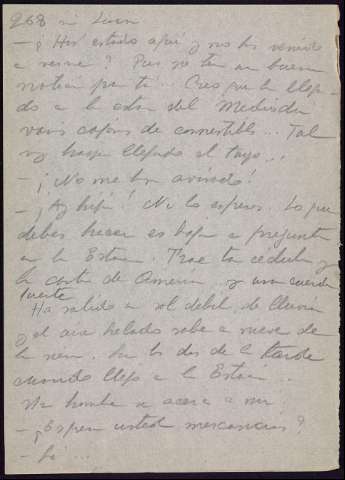 268 mi
- ¡Has estado aquí y no has venido
a verme? Pues yo tan buena
noticia para ti. Creo que ha llega-
do a la estación del Mediodía
varias cajas de comestibles... Tal
vez haya llegado el tuyo...
- ¡No me han avisado!
- ¡Ay hija! Ni lo esperes. Lo que
debes hacer es bajar a preguntar
en la Estación. Trae tu cédula y
la carta de America y una cuerda
fuerte
Ha salido un sol debil de lluvia
y el aire helado sabe a nieve de
la sierra. Son las dos de la tarde
cuando llego a la Estación.
Un hombre se acerca a mi
- ¿Espera usted mercancias?
- Si...